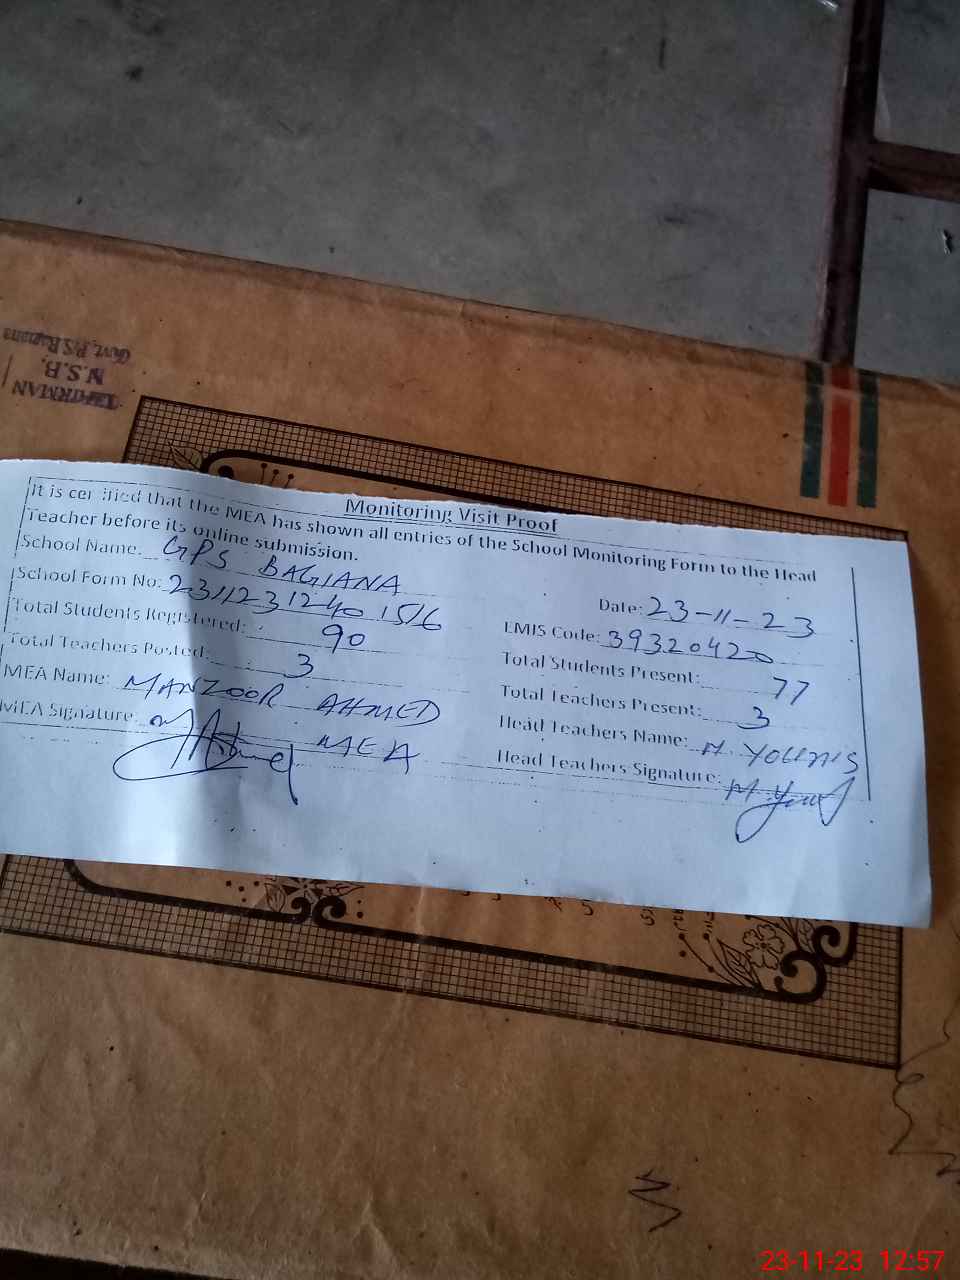 Monitoring Visit Proof
It is certified that the MEA has shown all entries of the School Monitoring Form to the Head
Teacher before its online submission.
School Name: GPS BAGIANA
Date: 23-11-23
School Form No: 2311231240 1516
EMIS Code: 39320420
Total Students Registered: 90
Total Students Present: 77
Total Teachers Posted: 3
Total Teachers Present: 3
MEA Name: MANZOOR AHMED
Head Teachers Name: M. YOUNIS
MEA Signature: MEA
Head Teachers Signature:
N.S.B.
23-11-23 12:57